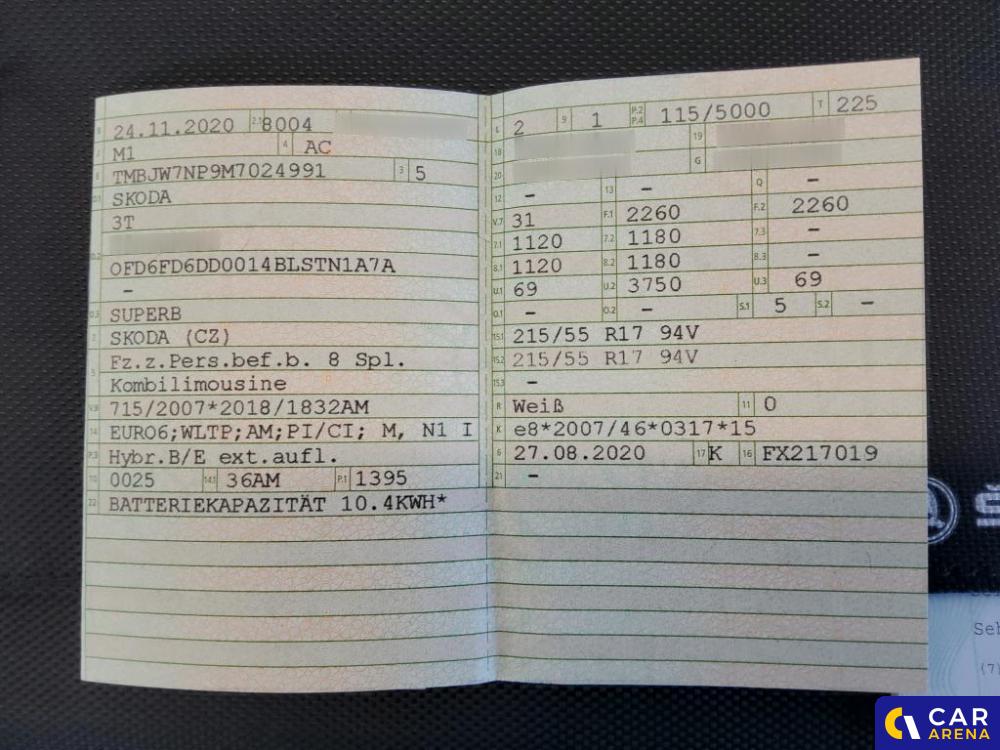 B 24.11.2020 2.1 8004
J M1 4 AC
E TMBJW7NP9M7024991 3 5
D.1 SKODA
3T
D.2
OFD6FD6DD0014BLSTN1A7A
–
D.3 SUPERB
2 SKODA (CZ)
5 Fz.z.Pers.bef.b. 8 Spl.
Kombilimousine
V.9 715/2007*2018/1832AM
14 EURO6;WLTP;AM;PI/CI; M, N1 I
P.3 Hybr.B/E ext.aufl.
10 0025 14.1 36AM P.1 1395
22 BATTERIEKAPAZITÄT 10.4KWH*
L 2 9 1 P.2 P.4 115/5000 T 225
18 19
20 G
12 – 13 – Q –
V.7 31 F.1 2260 F.2 2260
7.1 1120 7.2 1180 7.3 –
8.1 1120 8.2 1180 8.3 –
U.1 69 U.2 3750 U.3 69
O.1 – O.2 – S.1 5 S.2 –
15.1 215/55 R17 94V
15.2 215/55 R17 94V
15.3 –
R Weiß 11 0
K e8*2007/46*0317*15
6 27.08.2020 17 K 16 FX217019
21 –
Seb
(7)
CAR
ARENA